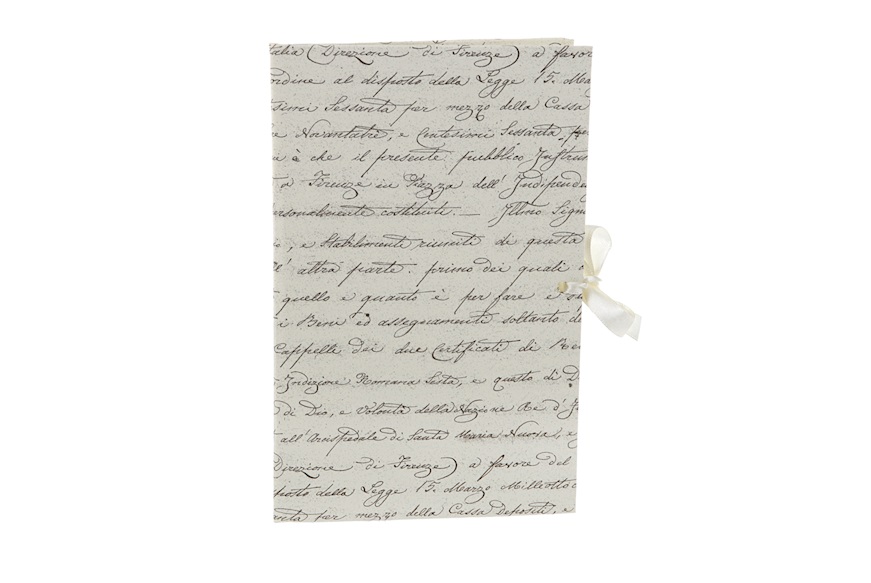 talia (Direzione di Firenze) a favore
ordine al disposto della Legge 15. Mar
simi Sessanta per mezzo della Cassa
re Novantatre, e Centesimi Sessanta, per
a è che il presente pubblico Instrum
a Firenze in Piazza dell' Independen
personalmente costituiti. — Illmo Sign
io, e Stabilimenti riuniti di questa
ll' altra parte. primo dei quali
quello e quanto è per fare e
i Beni ed assegnamenti soltanto de
Cappelle dei due Certificati di Ren
Indizione Romana Sesta, e questo dì D
di Dio, e Volontà della Nazione Re d' I
all' Arcispedale di Santa Maria Nuova, e
Direzione di Firenze) a favore del
sposto della Legge 15. Marzo Milleotto
anta per mezzo della Cassa depositi, e